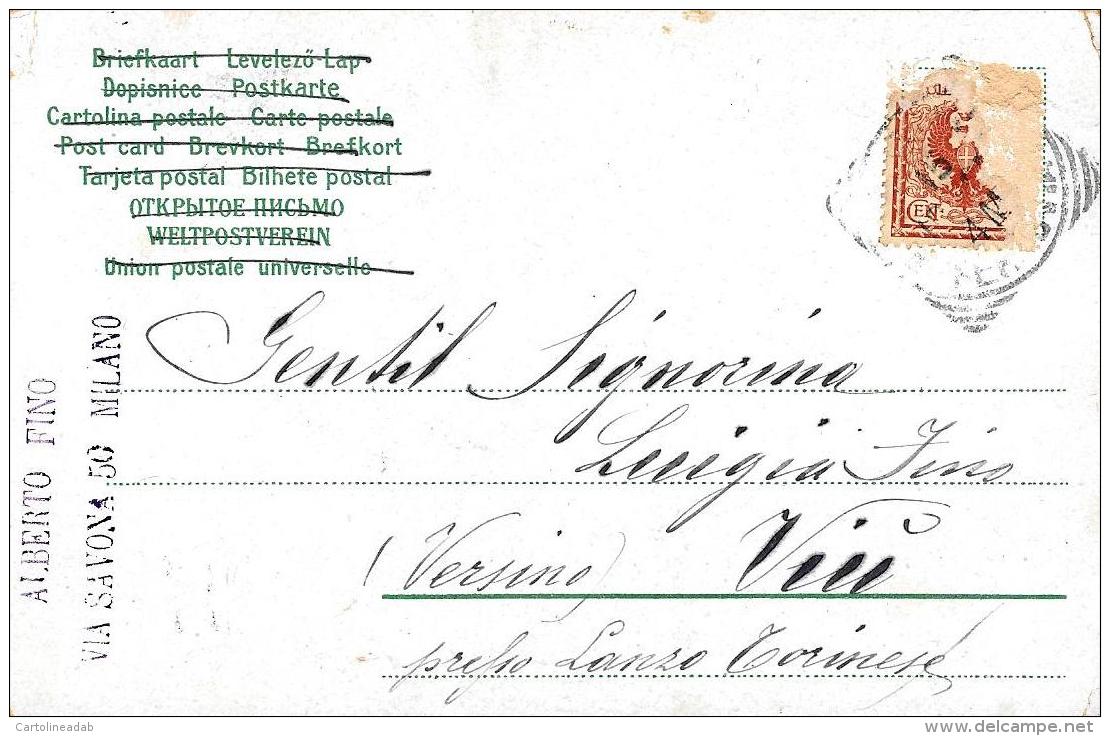 Briefkaart Levelező-Lap
Dopisnice Postkarte
Cartolina postale Carte postale
Post card Brevkort Brefkort
Tarjeta postal Bilhete postal
ОТКРЫТОЕ ПИСЬМО
WELTPOSTVEREIN
Union postale universelle
ALBERTO FINO
VIA SAVONA 50 MILANO
Gentil Signorina
Luigia Fino
(Versino) Viù
presso Lanzo Torinese
Cartolineadab
delcampe.net